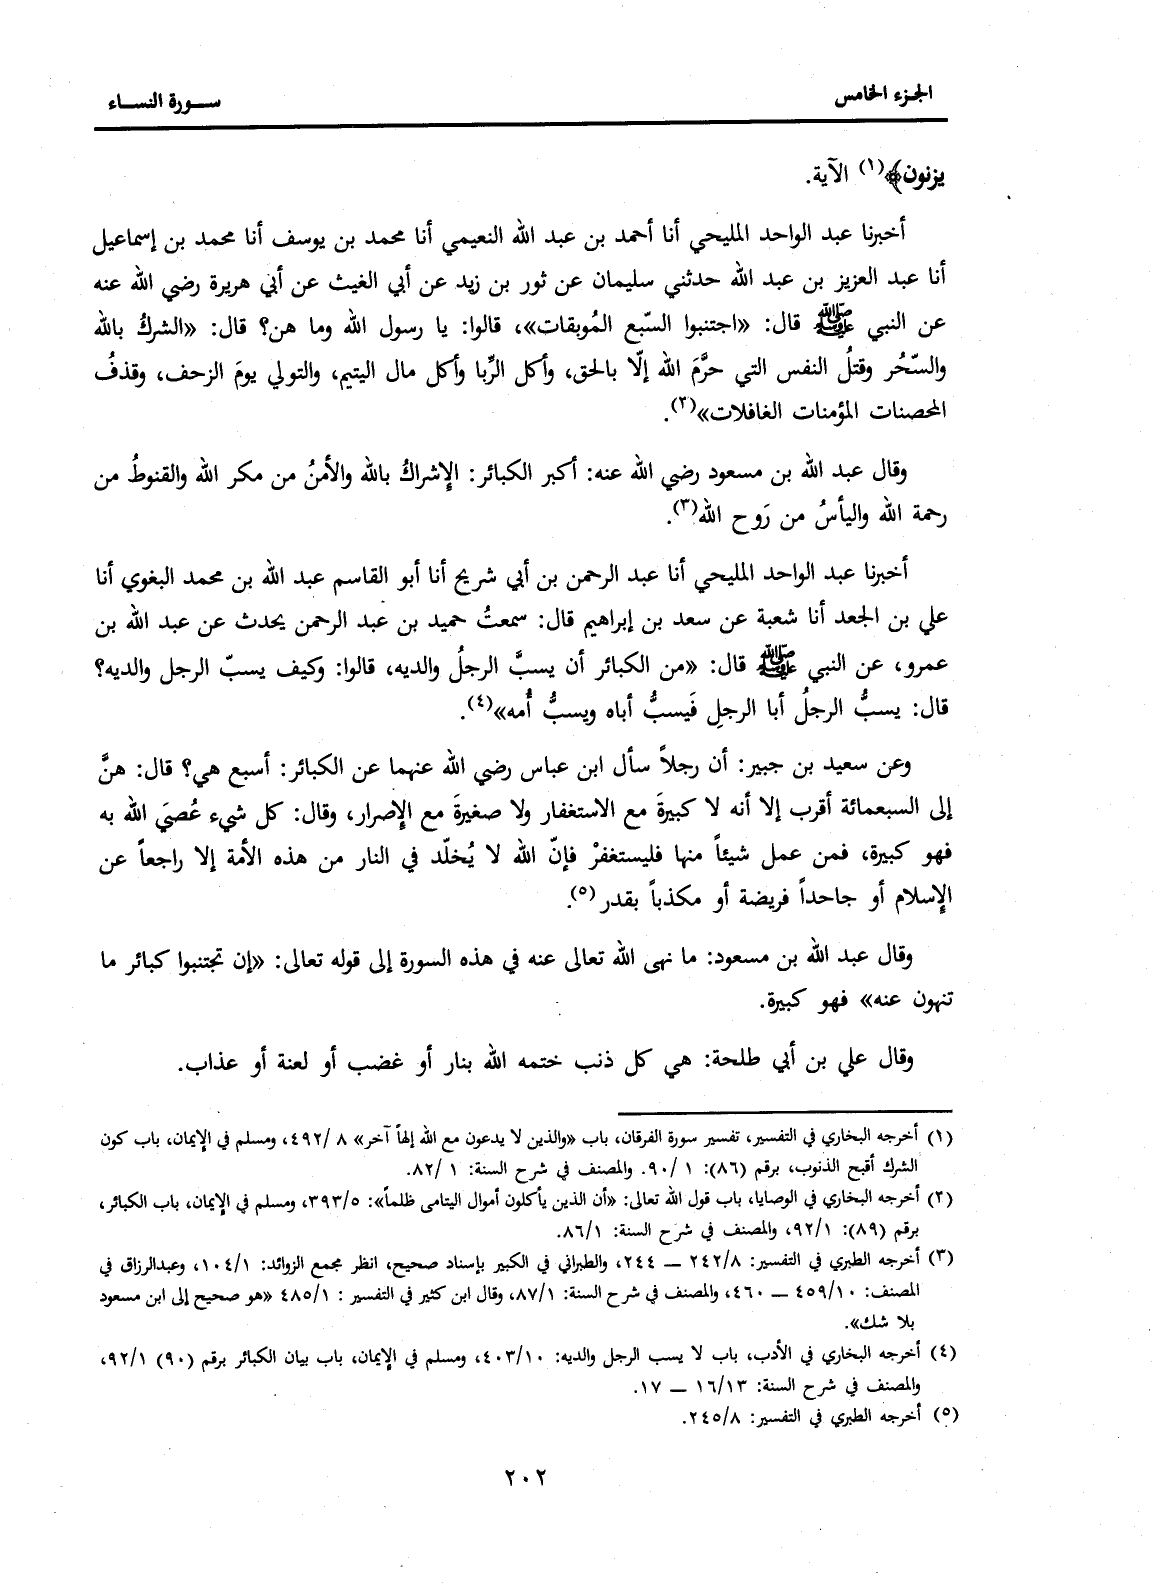 الجزء الخامس
سورة النساء
يزنون﴾(١) الآية.
أخبرنا عبد الواحد المليحي أنا أحمد بن عبد الله النعيمي أنا محمد بن يوسف أنا محمد بن إسماعيل
أنا عبد العزيز بن عبد الله حدثني سليمان عن ثور بن زيد عن أبي الغيث عن أبي هريرة رضي الله عنه
عن النبي ﷺ قال: «اجتنبوا السّبع المُوبقات»، قالوا: يا رسول الله وما هن؟ قال: «الشركُ بالله
والسّحُر وقتلُ النفس التي حرَّمَ الله إلّا بالحق، وأكل الرِّبا وأكل مال اليتيم، والتولي يومَ الزحف، وقذفُ
المحصنات المؤمنات الغافلات»(٢).
وقال عبد الله بن مسعود رضي الله عنه: أكبر الكبائر: الإشراكُ بالله والأمنُ من مكر الله والقنوطُ من
رحمة الله واليأسُ من رَوح الله(٣).
أخبرنا عبد الواحد المليحي أنا عبد الرحمن بن أبي شريح أنا أبو القاسم عبد الله بن محمد البغوي أنا
علي بن الجعد أنا شعبة عن سعد بن إبراهيم قال: سمعتُ حميد بن عبد الرحمن يحدث عن عبد الله بن
عمرو، عن النبي ﷺ قال: «من الكبائر أن يسبَّ الرجلُ والديه، قالوا: وكيف يسبّ الرجل والديه؟
قال: يسبُّ الرجلُ أبا الرجلِ فَيسبُّ أباه ويسبُّ أُمه»(٤).
وعن سعيد بن جبير: أن رجلاً سأل ابن عباس رضي الله عنهما عن الكبائر: أسبع هي؟ قال: هنَّ
إلى السبعمائة أقرب إلا أنه لا كبيرةَ مع الاستغفار ولا صغيرةَ مع الإصرار، وقال: كل شيء عُصيَ الله به
فهو كبيرة، فمن عمل شيئاً منها فليستغفرْ فإنّ الله لا يُخلّد في النار من هذه الأمة إلا راجعاً عن
الإسلام أو جاحداً فريضة أو مكذباً بقدر(٥).
وقال عبد الله بن مسعود: ما نهى الله تعالى عنه في هذه السورة إلى قوله تعالى: «إن تجتنبوا كبائر ما
تنهون عنه» فهو كبيرة.
وقال علي بن أبي طلحة: هي كل ذنب ختمه الله بنار أو غضب أو لعنة أو عذاب.
(١) أخرجه البخاري في التفسير، تفسير سورة الفرقان، باب «والذين لا يدعون مع الله إلهاً آخر» ٨ /٤٩٢، ومسلم في الإيمان، باب كون
الشرك أقبح الذنوب، برقم (٨٦): ١ /٩٠. والمصنف في شرح السنة: ١ /٨٢.
(٢) أخرجه البخاري في الوصايا، باب قول الله تعالى: «أن الذين يأكلون أموال اليتامى ظلماً»: ٣٩٣/٥، ومسلم في الإيمان، باب الكبائر،
برقم (٨٩): ٩٢/١، والمصنف في شرح السنة: ٨٦/١.
(٣) أخرجه الطبري في التفسير: ٢٤٢/٨ — ٢٤٤، والطبراني في الكبير بإسناد صحيح، انظر مجمع الزوائد: ١٠٤/١، وعبدالرزاق في
المصنف: ٤٥٩/١٠ — ٤٦٠، والمصنف في شرح السنة: ٨٧/١، وقال ابن كثير في التفسير : ٤٨٥/١ «هو صحيح إلى ابن مسعود
بلا شك».
(٤) أخرجه البخاري في الأدب، باب لا يسب الرجل والديه: ٤٠٣/١٠، ومسلم في الإيمان، باب بيان الكبائر برقم (٩٠) ٩٢/١،
والمصنف في شرح السنة: ١٦/١٣ — ١٧.
(٥) أخرجه الطبري في التفسير: ٢٤٥/٨.
٢٠٢